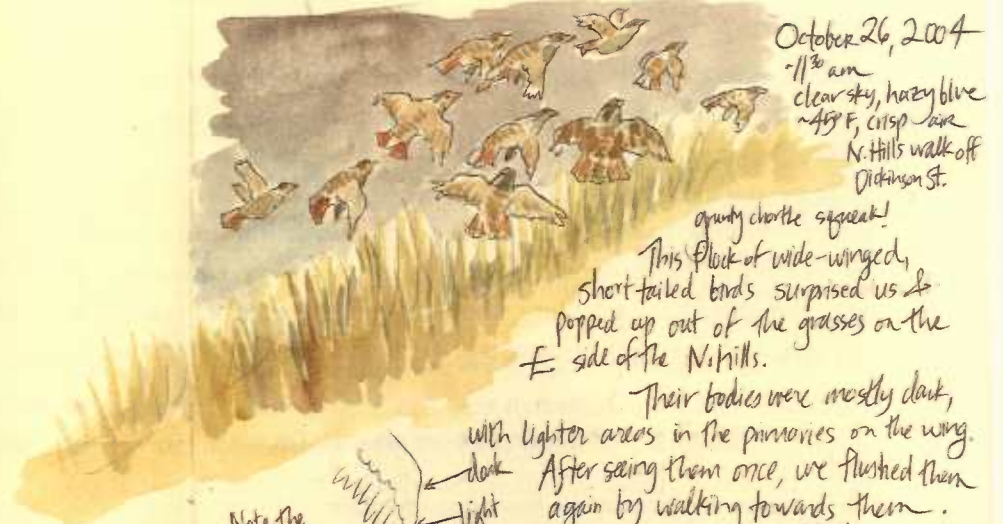 October 26, 2004
~11³⁰ am
clear sky, hazy blue
~45°F, crisp air
N. Hills walk off
Dickinson St.
grunty chortle squeak!
This flock of wide-winged,
short tailed birds surprised us &
popped up out of the grasses on the
E side of the N. Hills.
Their bodies were mostly dark,
with lighter areas in the primaries on the wing.
dark
After seeing them once, we flushed them
light
again by walking towards them.
Note the